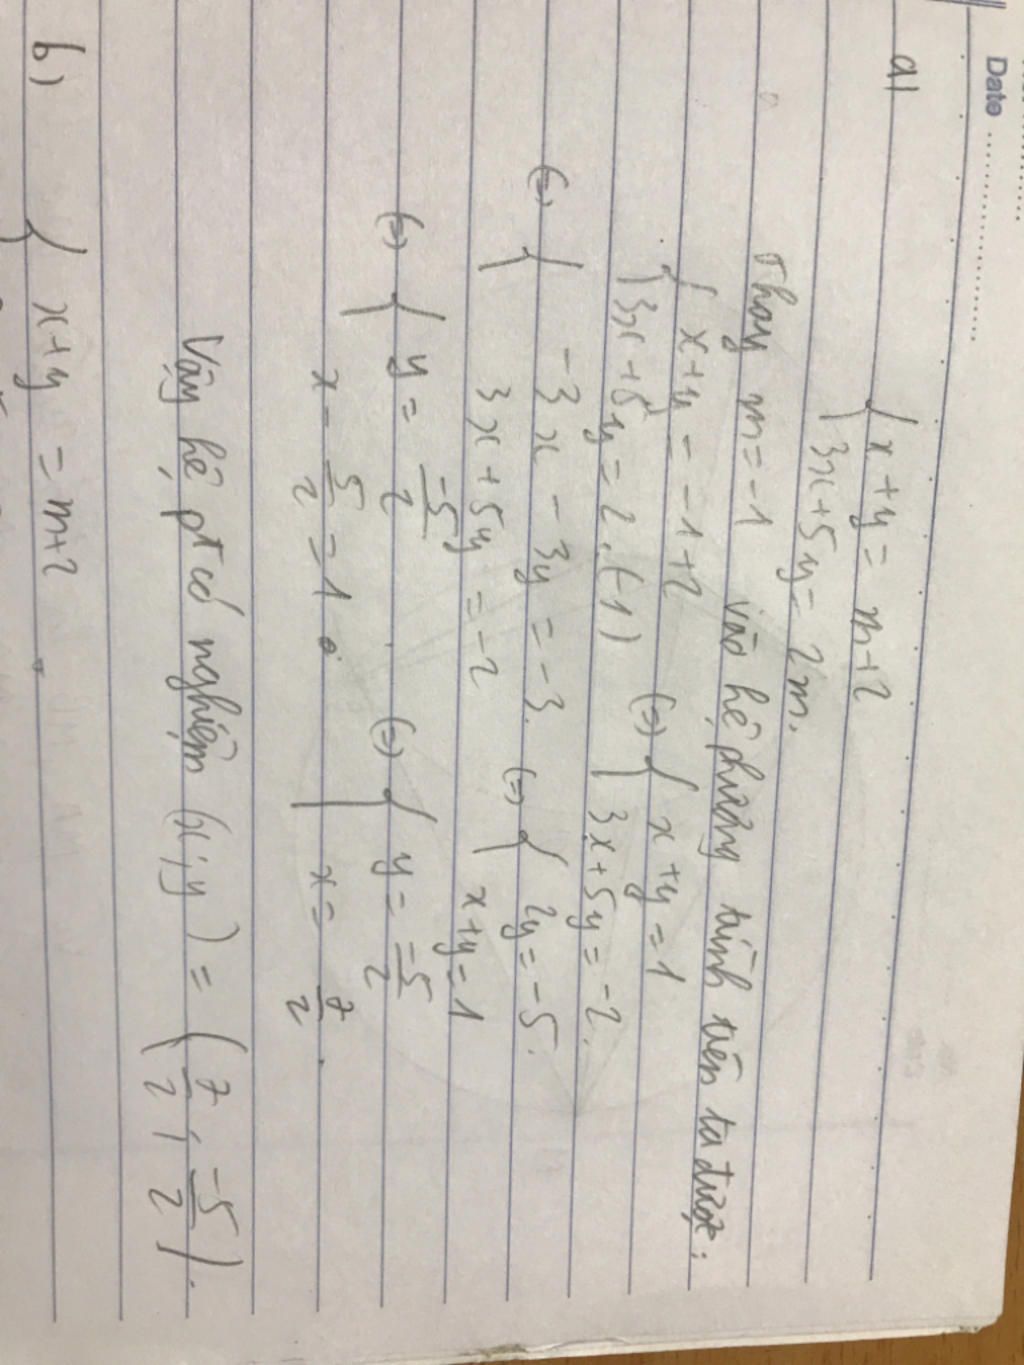 Date
a) { x + y = m + 2
3x + 5y = 2m.
Thay m = -1 vào hệ phương trình trên ta được:
{ x + y = -1 + 2 (=) { x + y = 1
3x + 5y = 2.(-1) 3x + 5y = -2.
(=) { -3x - 3y = -3. (=) { 2y = -5.
3x + 5y = -2 x + y = 1
(=) { y = -5/2 (=) { y = -5/2
x - 5/2 = 1. x = 7/2.
Vậy hệ pt có nghiệm (x; y) = (7/2; -5/2).
b) { x + y = m + 2